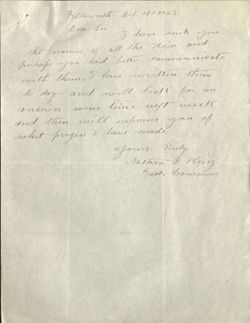 Ellsworth Oct 16th 1923
Dear Sir
I have sent you
the names of all the Heirs and
perhaps you had better communicate
with them, I have written them
to day and will look for an
answer some time next week
and then will inform you of
what progress I have made
Yours Truly
Nathan E King